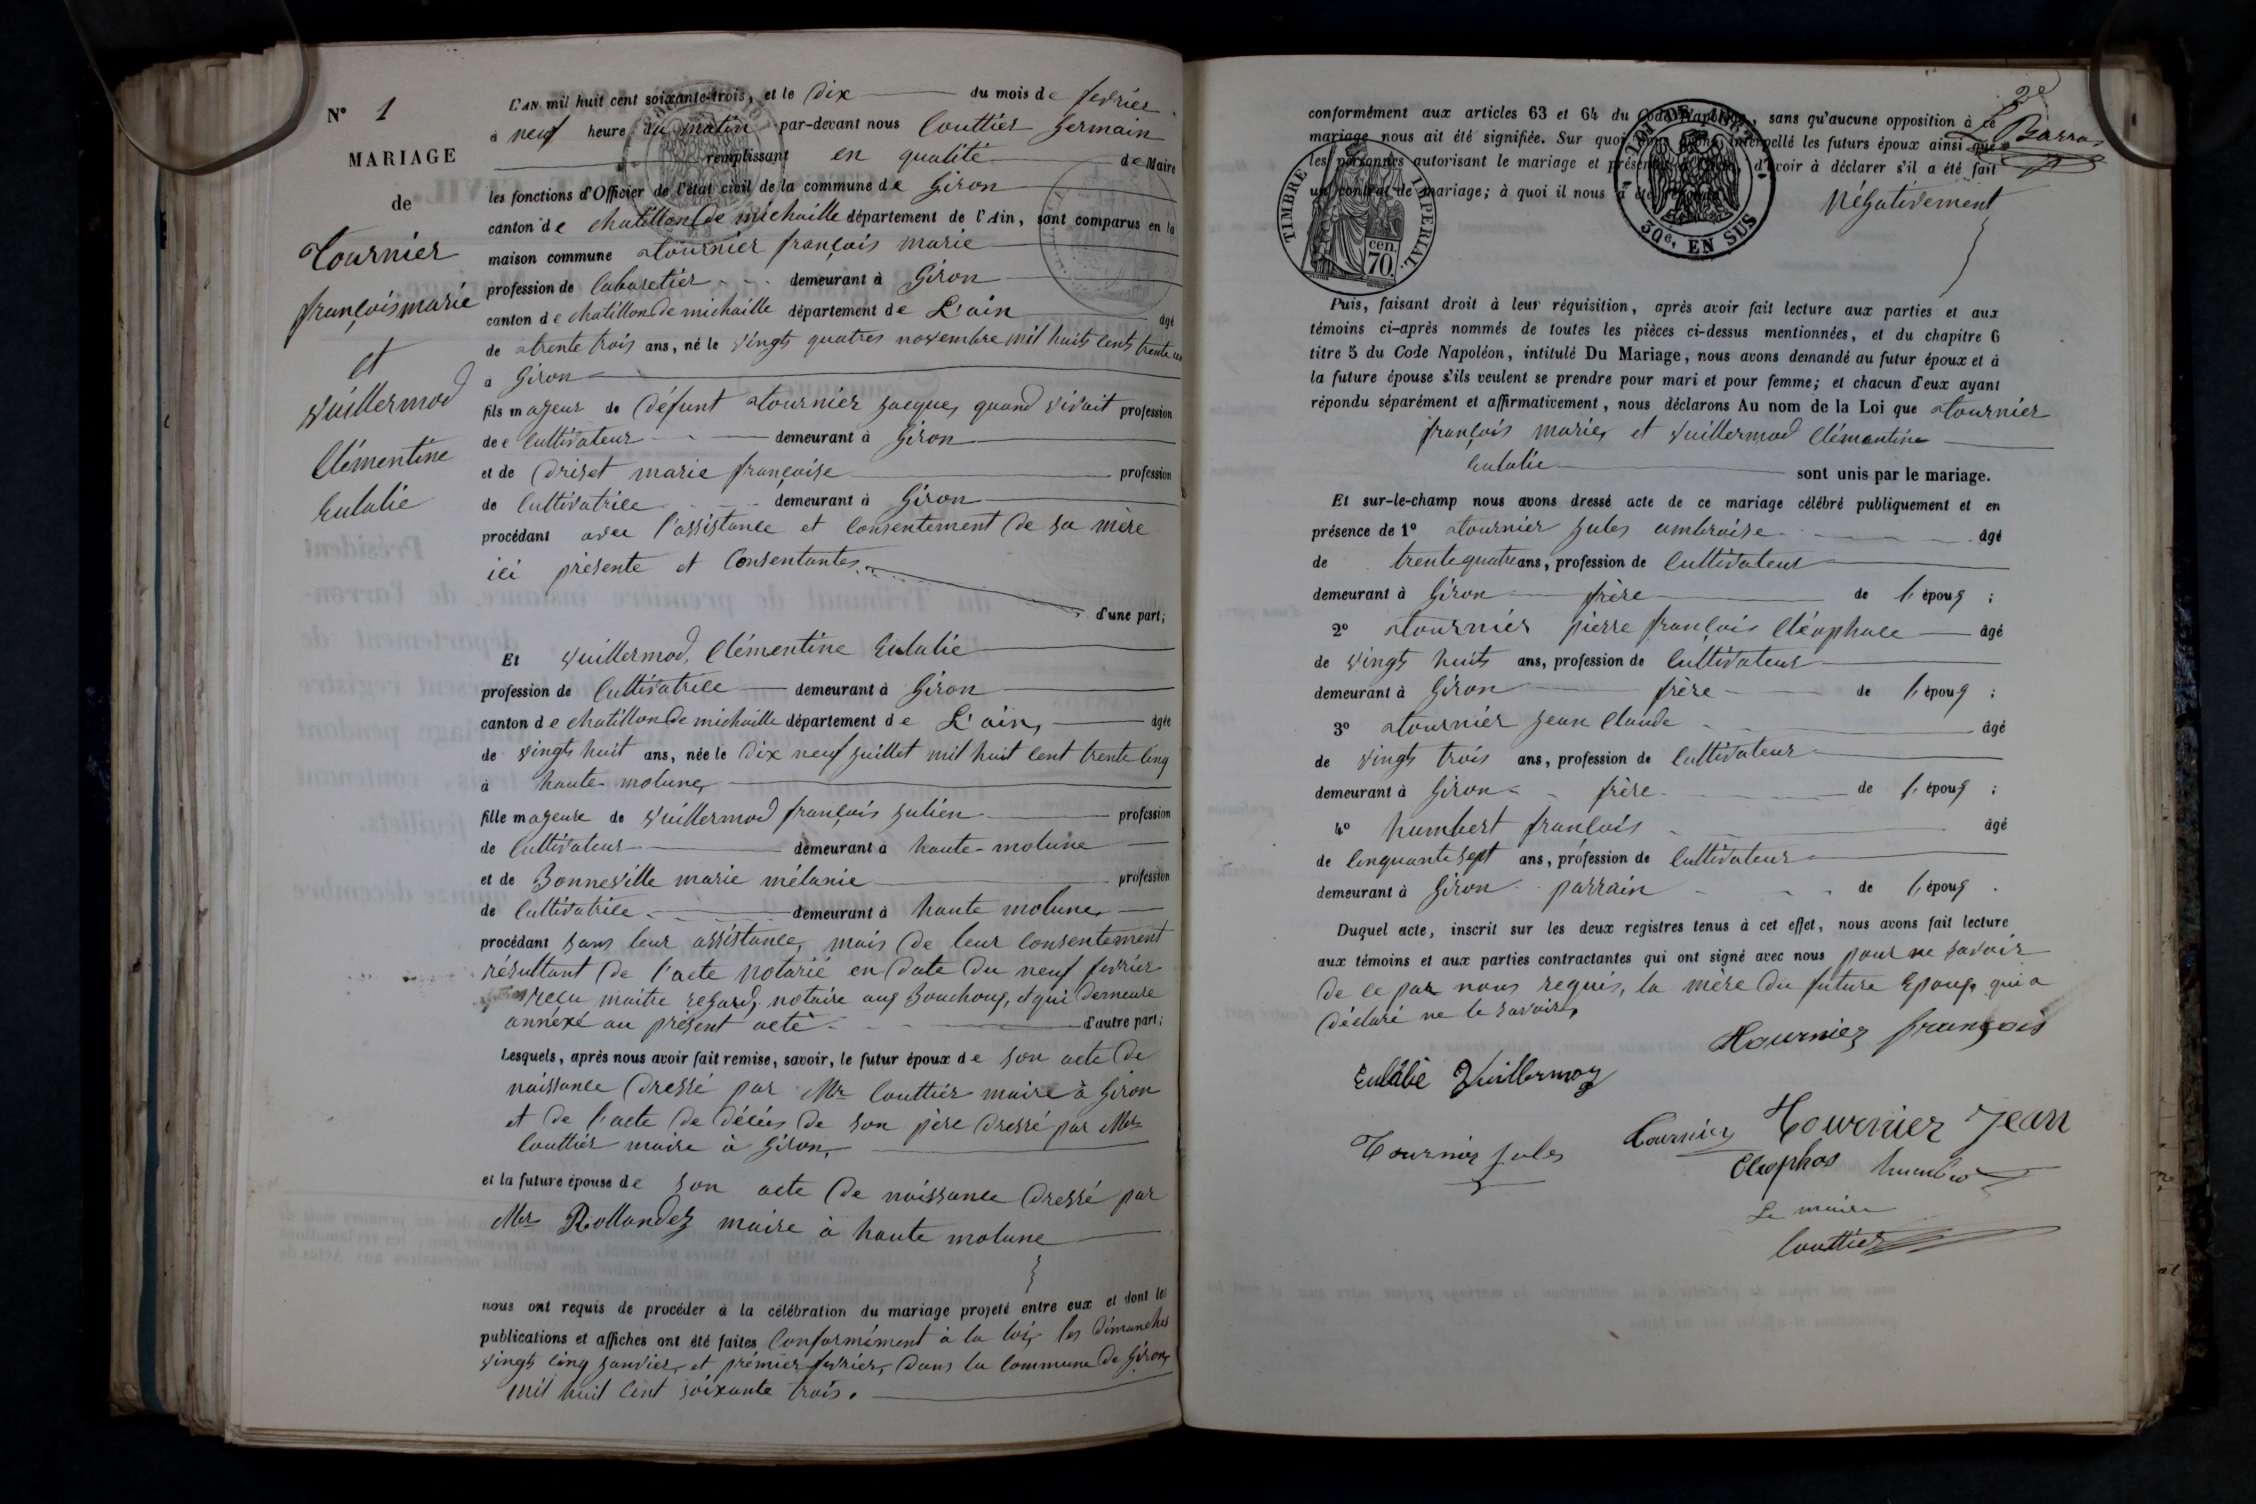 N° 1
MARIAGE
de
Tournier
françois marie
et
Vuillermod
Clémentine
Eulalie
L'AN mil huit cent soixante-trois, et le dix du mois de fevrier
à neuf heure du matin par-devant nous Couttier Germain
remplissant en qualité de Maire
les fonctions d'Officier de l'état civil de la commune de Giron
canton de chatillon de michaille département de l'Ain, sont comparus en la
maison commune Tournier françois marie
profession de Cabaretier demeurant à Giron
canton de chatillon de michaille département de L'ain âgé
de trente trois ans, né le vingt quatres novembre mil huits cents trente un
à Giron
fils majeur de défunt Tournier Jacques quand vivait profession
de Cultivateur demeurant à Giron
et de Driset marie françoise profession
de Cultivatrice demeurant à Giron
procédant avec l'assistance et consentement de sa mère
ici présente et Consentante
d'une part;
Et Vuillermod, Clémentine Eulalie
profession de Cultivatrice demeurant à Giron
canton de chatillon de michaille département de L'ain, âgée
de vingt huit ans, née le dix neuf juillet mil huit cent trente cinq
à haute-molune
fille majeure de Vuillermod françois Julien profession
de Cultivateur demeurant à haute-molune
et de Bonneville marie mélanie profession
de Cultivatrice demeurant à haute molune
procédant sans leur assistance, mais de leur consentement
résultant de l'acte notarié en date du neuf fevrier
reçu maitre Regard, notaire aux Bouchoux, et qui demeure
annéxé au présent acte d'autre part;
Lesquels, après nous avoir fait remise, savoir, le futur époux de son acte de
naissance dressé par Mr Couttier maire à Giron
et de l'acte de décès de son père dressé par Mr
Couttier maire à Giron,
et la future épouse de son acte de naissance dressé par
Mr Rollandez maire à haute molune
nous ont requis de procéder à la célébration du mariage projeté entre eux et dont les
publications et affiches ont été faites Conformément à la loi, les dimanches
vingt cinq janvier, et prémier fevrier, dans la commune de Giron,
mil huit cent soixante trois.
2e
Barras
conformément aux articles 63 et 64 du Code Napoléon, sans qu'aucune opposition à ce
mariage nous ait été signifiée. Sur quoi nous avons interpellé les futurs époux ainsi que
les personnes autorisant le mariage et présentes d'avoir à déclarer s'il a été fait
un contrat de mariage; à quoi il nous a été répondu Négativement
TIMBRE IMPERIAL
cen. 70.
30c. EN SUS
Puis, faisant droit à leur réquisition, après avoir fait lecture aux parties et aux
témoins ci-après nommés de toutes les pièces ci-dessus mentionnées, et du chapitre 6
titre 5 du Code Napoléon, intitulé Du Mariage, nous avons demandé au futur époux et à
la future épouse s'ils veulent se prendre pour mari et pour femme; et chacun d'eux ayant
répondu séparément et affirmativement, nous déclarons Au nom de la Loi que Tournier
françois marie, et Vuillermod Clémentine
Eulalie sont unis par le mariage.
Et sur-le-champ nous avons dressé acte de ce mariage célébré publiquement et en
présence de 1° Tournier Jules ambroise âgé
de trente quatre ans, profession de Cultivateur
demeurant à Giron frère de l'époux ;
2° Tournier pierre françois Cléophace âgé
de vingt huits ans, profession de Cultivateur
demeurant à Giron frère de l'époux ;
3° Tournier Jean Claude âgé
de vingt trois ans, profession de Cultivateur
demeurant à Giron frère de l'époux ;
4° humbert françois âgé
de Cinquante sept ans, profession de Cultivateur
demeurant à Giron parrain de l'époux .
Duquel acte, inscrit sur les deux registres tenus à cet effet, nous avons fait lecture
aux témoins et aux parties contractantes qui ont signé avec nous pour ne savoir
de ce par nous requis, la mère du future Epoux qui a
déclaré ne le savoir,
Tournier françois
Eulalie Vuillermoz
Tournier Jules
Tournier Cleophas
Tournier Jean
humber
Le maire
Couttier